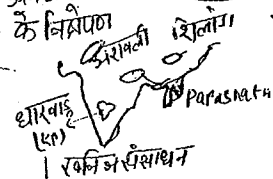 के निक्षेपण
अरावली शिलोंग
Parasnath
धारवाड़
खनिज संसाधन